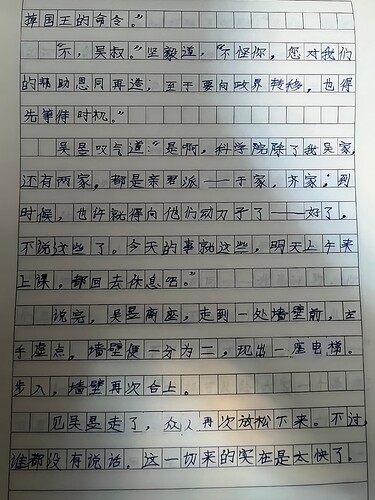 掉国王的命令。”
“不，吴叔。”坚毅道，“不怪你，您对我们
的帮助恩同再造；至于要向政界转移，也得
先等待时机。”
吴昱叹气道：“是啊，科学院除了我吴家，
还有两家，都是亲君派——于家，齐家；到
时候，也许就得向他们动刀子了——好了，
不说这些了。今天的事就这些，明天上午来
上课，都回去休息吧。”
说完，吴昱离座，走到一处墙壁前，左
手虚点，墙壁便一分为二，现出一座电梯。
步入，墙壁再次合上。
见吴昱走了，众人再次放松下来。不过，
谁都没有说话，这一切来的实在是太快了，